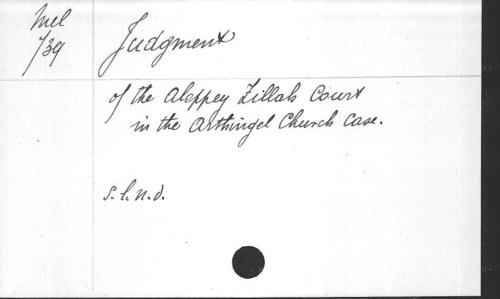 Mel
739
Judgment
of the Aleppey Zillah Court
in the Arthingel Church Case.
s.l.n.d.